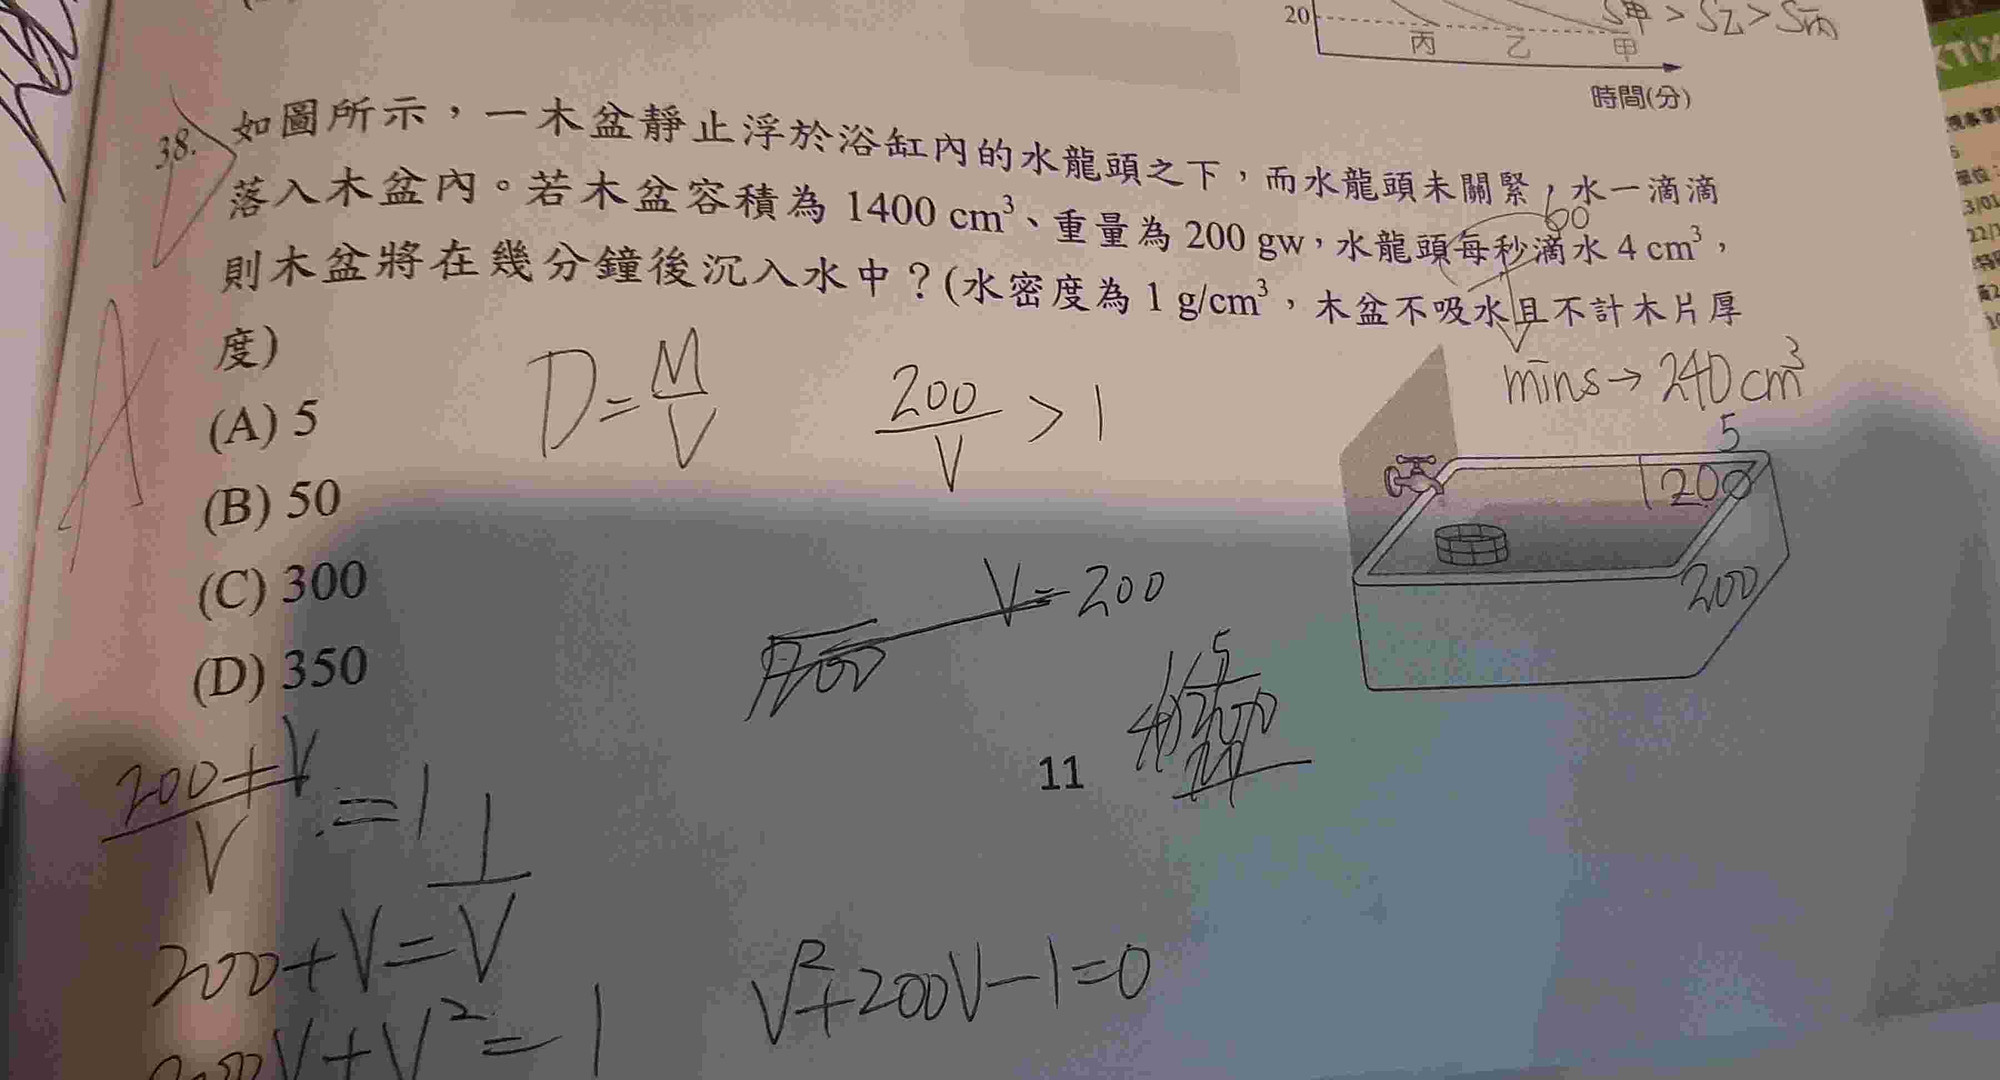 20
丙 乙 甲
S甲 > S乙 > S丙
時間(分)
38. 如圖所示,一木盆靜止浮於浴缸內的水龍頭之下,而水龍頭未關緊,水一滴滴
落入木盆內。若木盆容積為 1400 cm³、重量為 200 gw,水龍頭每秒滴水 4 cm³,
60
則木盆將在幾分鐘後沉入水中?(水密度為 1 g/cm³,木盆不吸水且不計木片厚
度)
mins → 240 cm³
(A) 5
(B) 50
(C) 300
(D) 350
A
D = M/V
200/V > 1
5
1200
200
V = 200
5
11
200+V/V = 1
200+V = 1/V
V²+200V-1=0
200V+V²=1